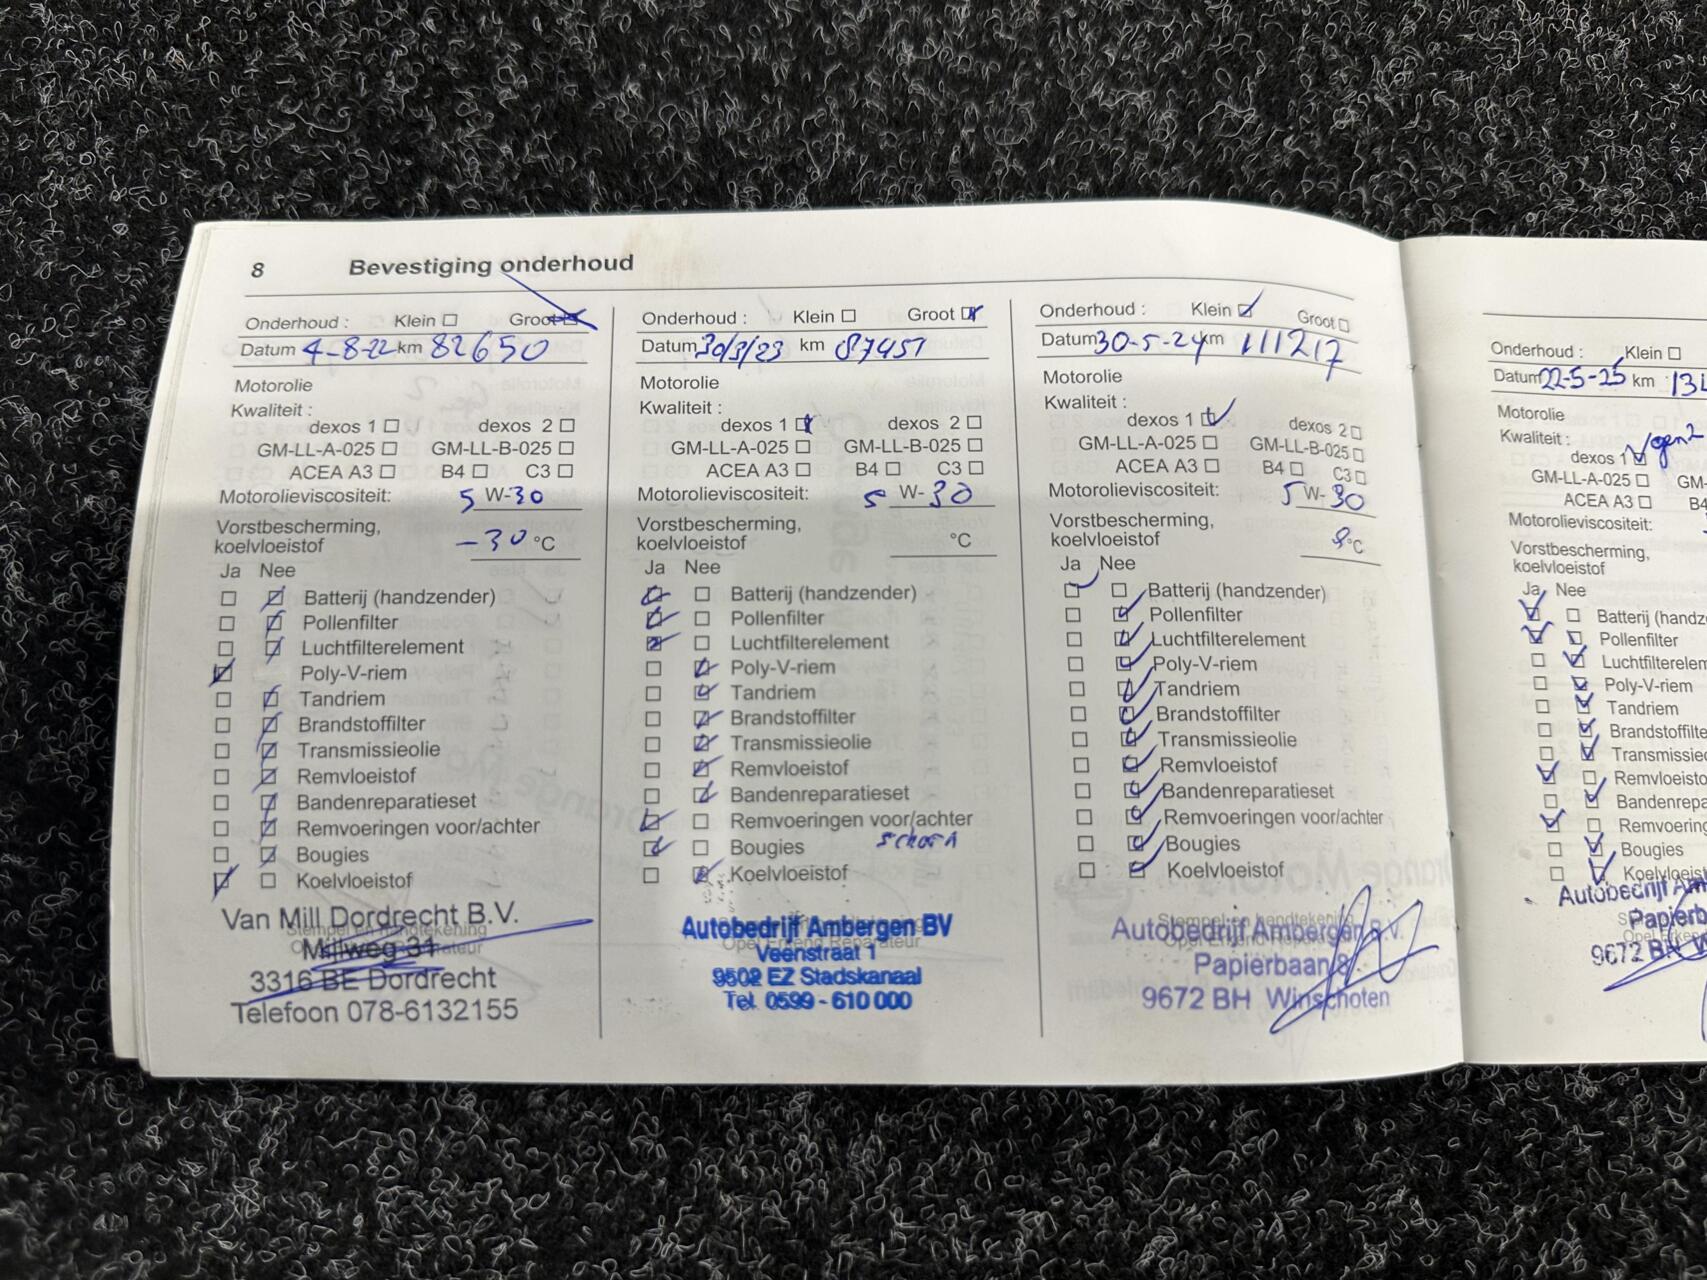 8 Bevestiging onderhoud
Onderhoud : Klein Groot
Datum 4-8-22 km 82650
Motorolie
Kwaliteit :
dexos 1 dexos 2
GM-LL-A-025 GM-LL-B-025
ACEA A3 B4 C3
Motorolieviscositeit: 5 W-30
Vorstbescherming,
koelvloeistof -30 °C
Ja Nee
Batterij (handzender)
Pollenfilter
Luchtfilterelement
Poly-V-riem
Tandriem
Brandstoffilter
Transmissieolie
Remvloeistof
Bandenreparatieset
Remvoeringen voor/achter
Bougies
Koelvloeistof
Van Mill Dordrecht B.V.
Millweg 31
3316 BE Dordrecht
Telefoon 078-6132155
Onderhoud : Klein Groot
Datum 30/3/23 km 87451
Motorolie
Kwaliteit :
dexos 1 dexos 2
GM-LL-A-025 GM-LL-B-025
ACEA A3 B4 C3
Motorolieviscositeit: 5 W-30
Vorstbescherming,
koelvloeistof °C
Ja Nee
Batterij (handzender)
Pollenfilter
Luchtfilterelement
Poly-V-riem
Tandriem
Brandstoffilter
Transmissieolie
Remvloeistof
Bandenreparatieset
Remvoeringen voor/achter
Bougies
Koelvloeistof
Autobedrijf Ambergen BV
Veenstraat 1
9502 EZ Stadskanaal
Tel. 0599 - 610 000
Onderhoud : Klein Groot
Datum 30-5-24 km 111217
Motorolie
Kwaliteit :
dexos 1 dexos 2
GM-LL-A-025 GM-LL-B-025
ACEA A3 B4 C3
Motorolieviscositeit: 5 W-30
Vorstbescherming,
koelvloeistof °C
Ja Nee
Batterij (handzender)
Pollenfilter
Luchtfilterelement
Poly-V-riem
Tandriem
Brandstoffilter
Transmissieolie
Remvloeistof
Bandenreparatieset
Remvoeringen voor/achter
Bougies
Koelvloeistof
Stempel en handtekening
Autobedrijf Ambergen B.V.
Papierbaan 8
9672 BH Winschoten
Onderhoud : Klein
Datum 22-5-25 km 13
Motorolie
Kwaliteit : gen2
dexos 1
GM-LL-A-025 GM-
ACEA A3 B4
Motorolieviscositeit:
Vorstbescherming,
koelvloeistof
Ja Nee
Batterij (handze
Pollenfilter
Luchtfilterelem
Poly-V-riem
Tandriem
Brandstoffilte
Transmissie
Remvloeisto
Bandenrepa
Remvoering
Bougies
Koelvloeistof
Autobedrijf Am
Papierb
9672 BH W